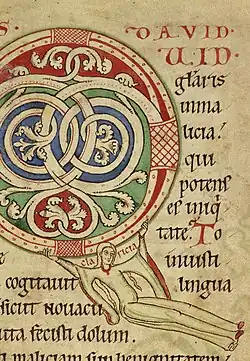 S. DAVID
UID
glaris
inma
licia?
qui
potens
es iniq
tate. To
claricia
inuisti
cogitauit lingua
sicut nouacu
uta fecisti dolum.
maliciam sup benignitatem